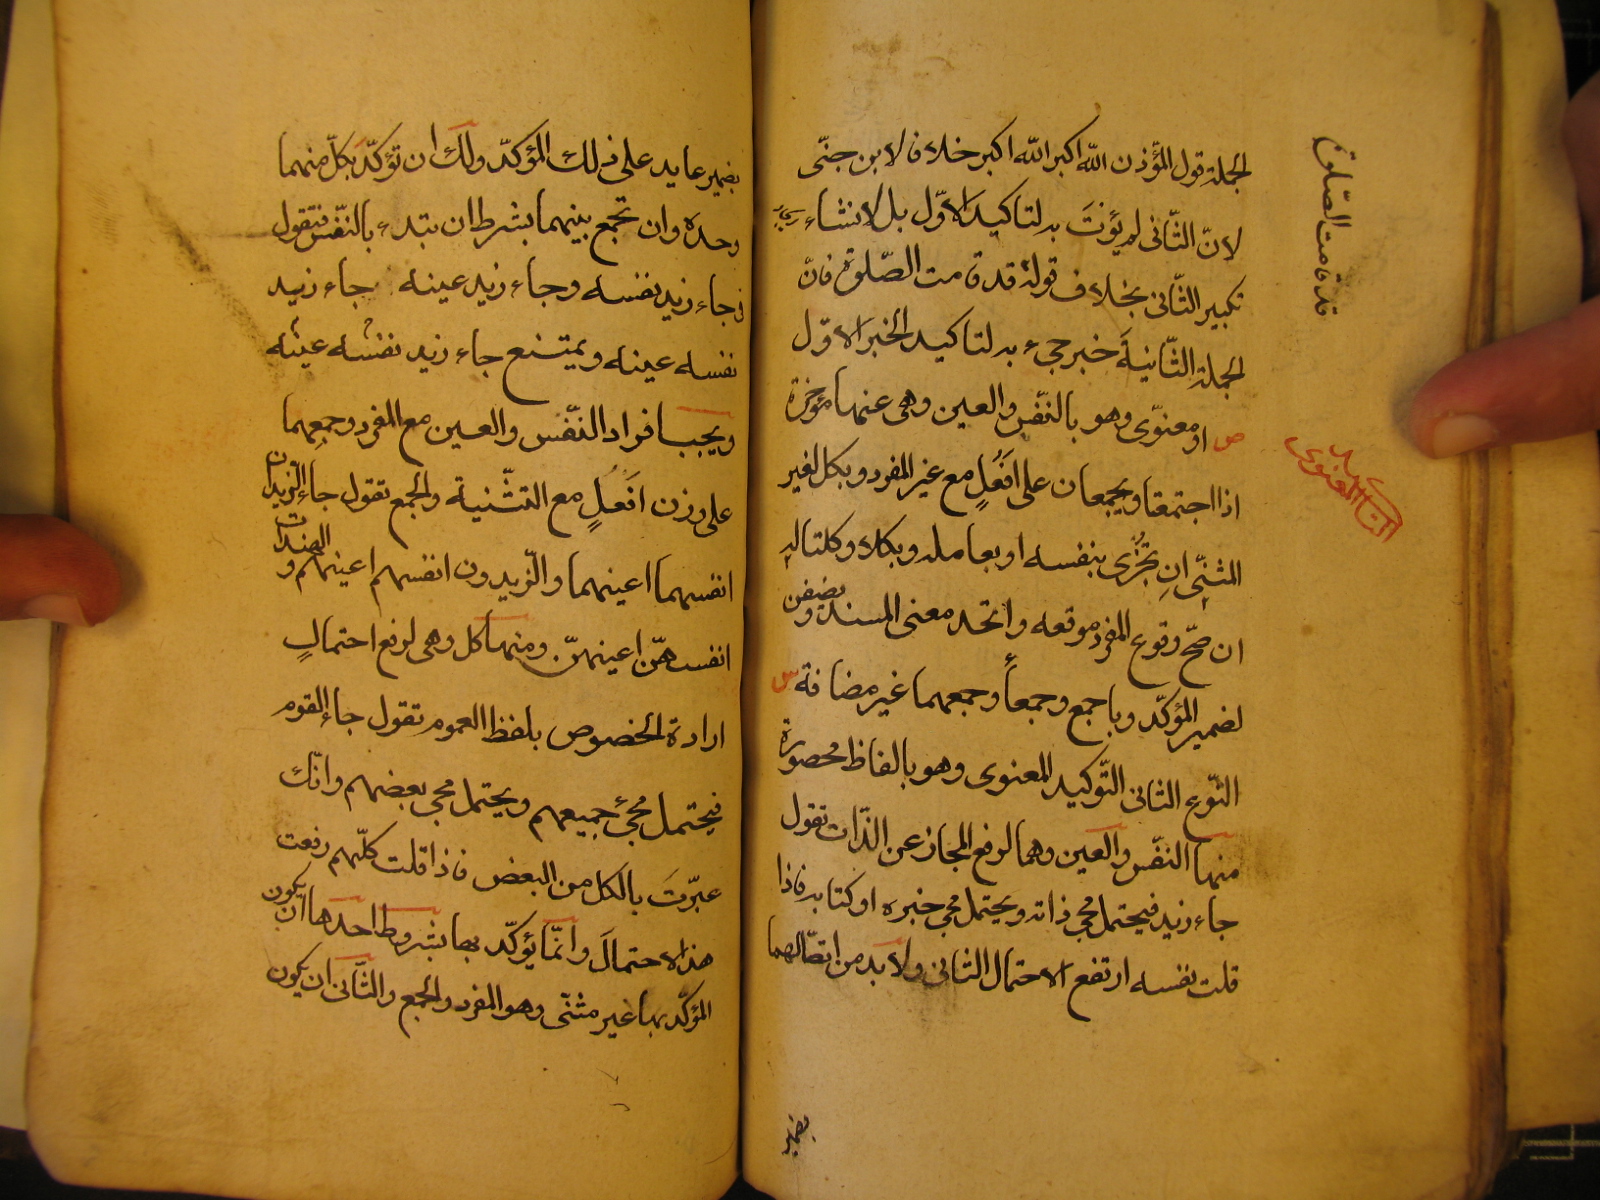 الجملة قول المؤذن الله اكبر الله اكبر خلافا لابن جنّى
لانّ الثّانى لم يؤتَ به لتاكيد الاوّل بل لانشاء
تكبير الثّانى بخلاف قوله قد قامت الصّلوة فانّ
الجملة الثّانيةَ خبر جىء به لتاكيد الخبر الاوّل
ص او معنوىّ وهو بالنّفس والعين وهى عنها مؤخرة
اذا اجتمعتا ويجمعان على افعُلٍ مع غير المفرد وبكل لغير
المثنّى انِ تجزّى بنفسه او بعامله وبكلا وكلتا له
ان صحّ وقوع المفرد موقعه واتحد معنى المسند ويضفن
لضمير المؤكّد وباجمع وجمعاء وجمعهما غير مضافة س
النّوع الثانى التّوكيد المعنوى وهو بالفاظ محصورة
منها النّفس والعين وهما لرفع المجاز عن الذّات تقول
جاء زيد فيحتمل مجى ذاته ويحتمل مجى خبره او كتابه فاذا
قلت نفسه ارتفع الاحتمال الثانى ولا بد من اتصالهما
قد قامت الصّلوة
التاكيد المعنوى
بضمير
بضمير عايد على ذلك المؤكدّ ولك ان تؤكدّ بكلّ منهما
وحده وان تجمع بينهما بشرط ان تبتدء بالنّفس فتقول
جاء زيد نفسه وجاء زيد عينه جاء زيد
نفسه عينه ويمتنع جاء زيد نفسه عينه
ويجب افراد النّفس والعين مع المفرد وجمعهما
على وزن افعُلٍ مع التّثنية والجمع تقول جاء الزّيدان
انفسهما اعينهما والزّيدون انفسهم اعينهم والهندات
انفسهنّ اعينهنّ ومنها كل وهى لرفع احتمالِ
ارادة الخصوص بلفظ العموم تقول جاء القوم
فيحتمل مجئ جميعهم ويحتمل مجى بعضهم وانّك
عبّرتَ بالكل من البعض فاذا قلت كلّهم رفعت
هذا الاحتمالَ وانّما يؤكّد بها بشروط احدها ان يكون
المؤكّد بها غير مثنّى وهو المفرد والجمع والثّانى ان يكون